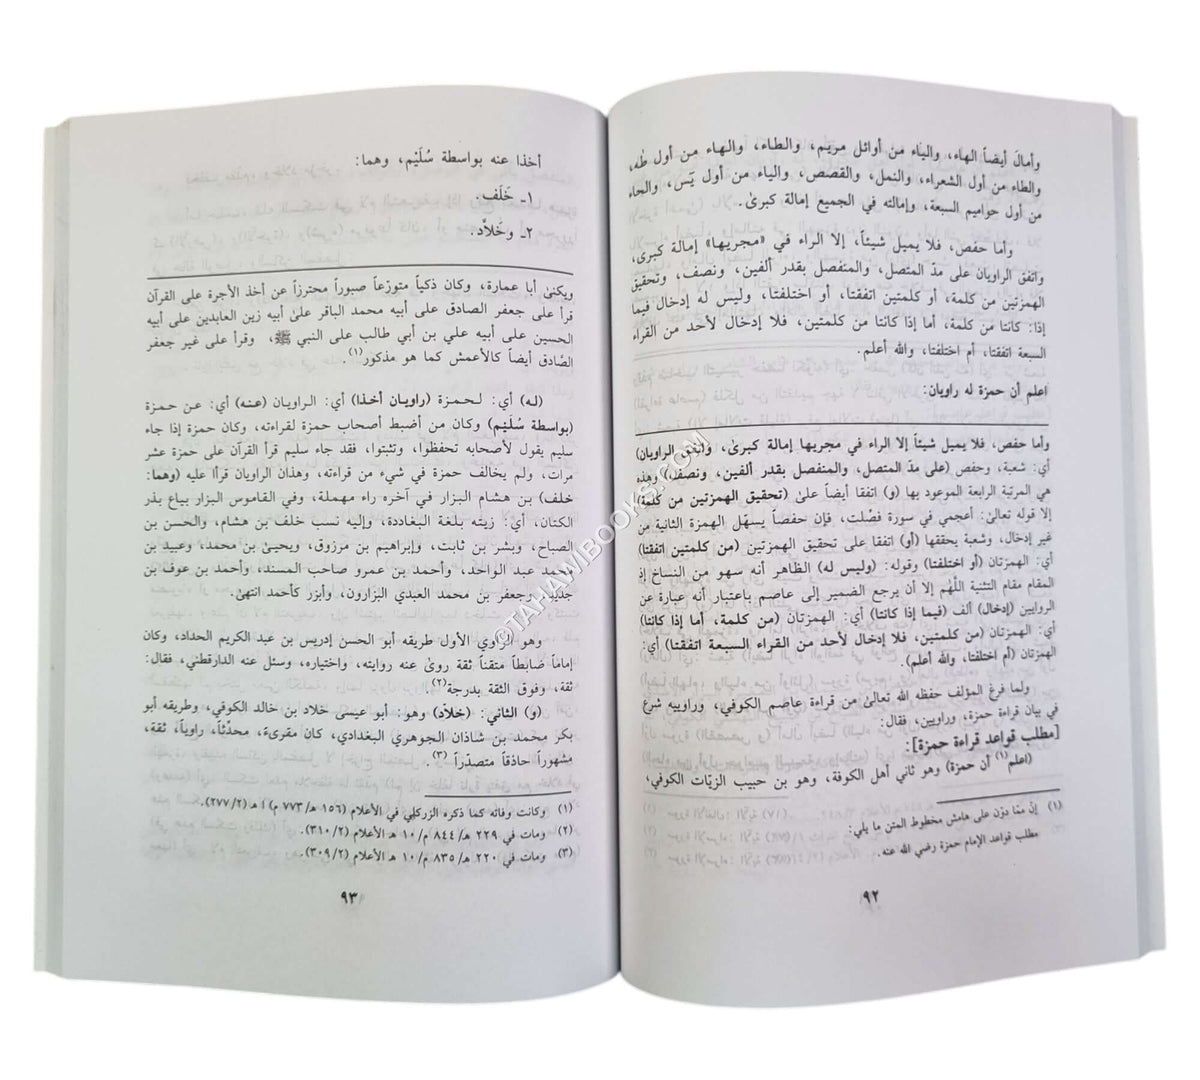 وأمالَ أيضاً الهاء، والياء من أوائل مريم، والطاء، والهاء من أول طه،
والطاء من أول الشعراء، والنمل، والقصص، والياء من أول يّس، والحاء
من أول حواميم السبعة، وإمالته في الجميع إمالة كبرىٰ.
وأما حفص، فلا يميل شيئاً، إلا الراء في «مجريها» إمالة كبرى،
واتفق الراويان على مدّ المتصل، والمنفصل بقدر ألفين، ونصف، وتحقيق
الهمزتين من كلمة، أو كلمتين اتفقتا، أو اختلفتا، وليس له إدخال فيما
إذا: كانتا من كلمة، أما إذا كانتا من كلمتين، فلا إدخال لأحد من القراء
السبعة اتفقتا، أم اختلفتا، والله أعلم.
اعلم أن حمزة له راويان:
وأما حفص، فلا يميل شيئاً إلا الراء في مجريها إمالة كبرىٰ، واتفق الراويان)
أي: شعبة، وحفص (على مدّ المتصل، والمنفصل بقدر ألفين، ونصف) وهذه
هي المرتبة الرابعة الموعود بها (و) اتفقا أيضاً علىٰ (تحقيق الهمزتين من كلمة)
إلا قوله تعالىٰ: أعجمي في سورة فصّلت، فإن حفصاً يسهّل الهمزة الثانية من
غير إدخال، وشعبة يحققها (أو) اتفقا على تحقيق الهمزتين (من كلمتين اتفقتا)
أي: الهمزتان (أو اختلفتا) وقوله: (وليس له) الظاهر أنه سهو من النساخ إذ
المقام مقام التثنية اللّٰهم إلا أن يرجع الضمير إلى عاصم باعتبار أنه عبارة عن
الروايين (إدخال) ألف (فيما إذا كانتا) أي: الهمزتان (من كلمة، أما إذا كانتا)
أي: الهمزتان (من كلمتين، فلا إدخال لأحد من القراء السبعة اتفقتا) أي:
الهمزتان (أم اختلفتا، والله أعلم).
ولما فرغ المؤلف حفظه الله تعالىٰ من قراءة عاصم الكوفي، وراوييه شرع
في بيان قراءة حمزة، وراويين، فقال:
[مطلب قواعد قراءة حمزة]:
(اعلم(١) أن حمزة) وهو ثاني أهل الكوفة، وهو بن حبيب الزيّات الكوفي،
(١) إنّ ممّا دوّن على هامش مخطوط المتن ما يلي:
مطلب قواعد الإمام حمزة رضي الله عنه.
٩٢
أخذا عنه بواسطة سُلَيْم، وهما:
١- خَلَف.
٢- وخُلاَّد.
ويكنىٰ أبا عمارة، وكان ذكياً متوزعاً صبوراً محترزاً عن أخذ الأجرة على القرآن
قرأ على جعفر الصادق على أبيه محمد الباقر علىٰ أبيه زين العابدين على أبيه
الحسين على أبيه علي بن أبي طالب على النبي ﷺ، وقرأ على غير جعفر
الصّادق أيضاً كالأعمش كما هو مذكور(١).
(له) أي: لحمزة (راويان أخذا) أي: الراويان (عنه) أي: عن حمزة
(بواسطة سُلَيْم) وكان من أضبط أصحاب حمزة لقراءته، وكان حمزة إذا جاء
سليم يقول لأصحابه تحفظوا، وتثبتوا، فقد جاء سليم قرأ القرآن على حمزة عشر
مرات، ولم يخالف حمزة في شيء من قراءته، وهذان الراويان قرأا عليه (وهما:
خلف) بن هشام البزار في آخره راء مهملة، وفي القاموس البزار بياع بذر
الكتان، أي: زيته بلغة البغاددة، وإليه نسب خلف بن هشام، والحسن بن
الصباح، وبشر بن ثابت، وإبراهيم بن مرزوق، ويحيىٰ بن محمد، وعبيد بن
محمد عبد الواحد، وأحمد بن عمرو صاحب المسند، وأحمد بن عوف بن
جديد، وجعفر بن محمد العبدي البزارون، وأبزر كأحمد انتهىٰ.
وهو الرّاوي الأول طريقه أبو الحسن إدريس بن عبد الكريم الحداد، وكان
إماماً ضابطاً متقناً ثقة روىٰ عنه روايته، واختياره، وسئل عنه الدارقطني، فقال:
ثقة، وفوق الثقة بدرجة(٢).
(و) الثاني: (خلاد) وهو: أبو عيسى خلاد بن خالد الكوفي، وطريقه أبو
بكر محمد بن شاذان الجوهري البغدادي، كان مقرىء، محدّثاً، راوياً، ثقة،
مشهوراً حاذقاً متصدّراً (٣).
(١) وكانت وفاته كما ذكره الزركلي في الأعلام (١٥٦ هـ/ ٧٧٣ م) أ هـ (٢/ ٢٧٧).
(٢) ومات في ٢٢٩ هـ/ ٨٤٤ م/ ١٠ هـ الأعلام (٢/ ٣١٠).
(٣) ومات في ٢٢٠ هـ/ ٨٣٥ م/ ١٠ هـ الأعلام (٢/ ٣٠٩).
٩٣
©TAHAWIBOOKS.COM